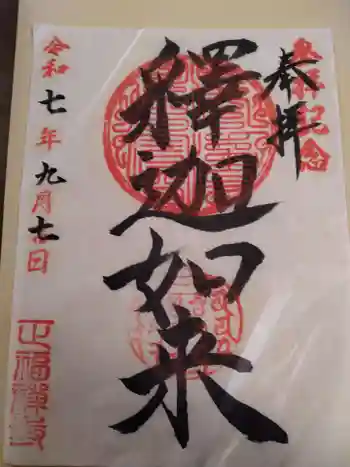 奉拝
参拝記念
釋迦如来
令和七年九月七日
正福禅寺